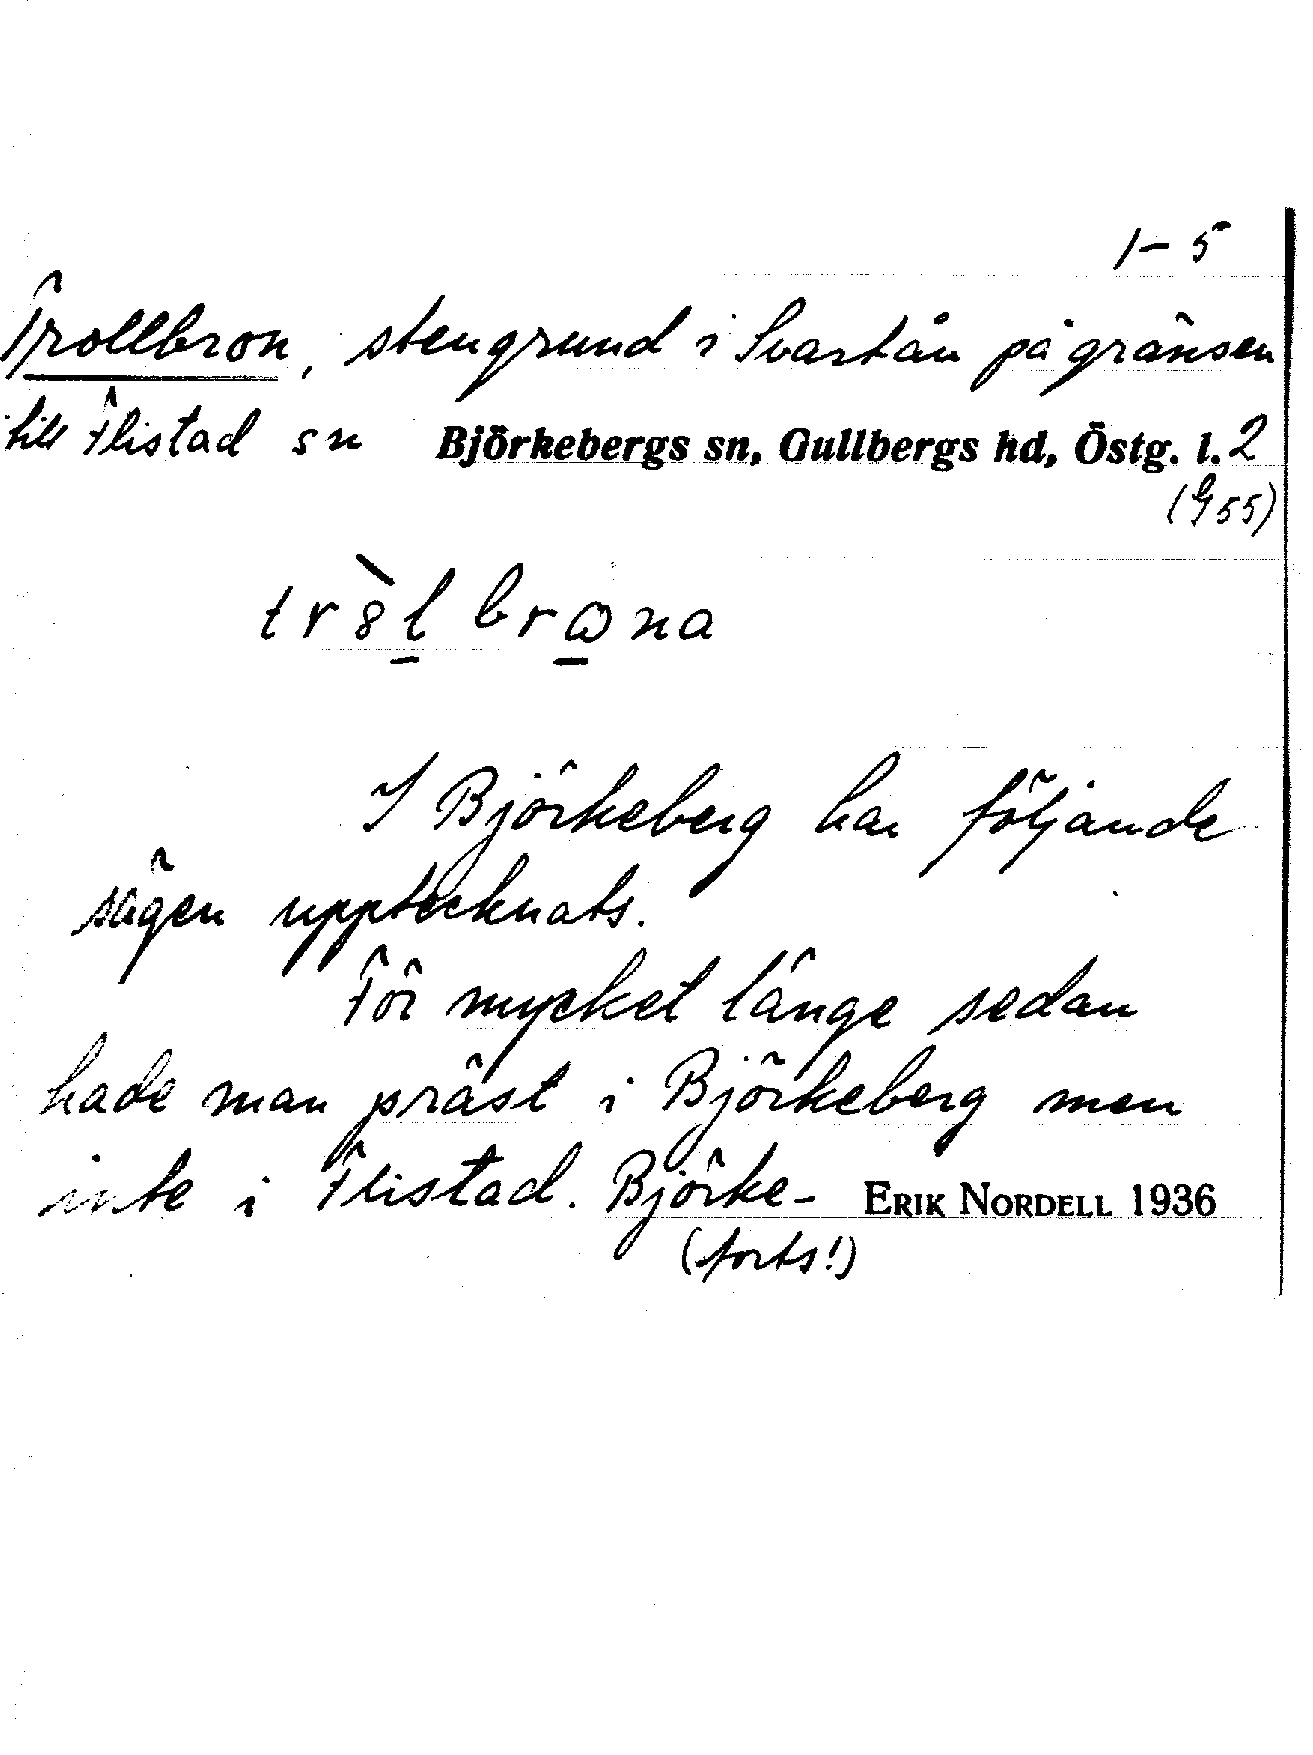 1-5
Trollbron, stengrund i Svartån på gränsen
till Flistad sn Björkebergs sn, Gullbergs hd, Östg. l. 2
(G 55)
tr8̀l brωna
I Björkeberg har följande
sägen upptecknats.
För mycket länge sedan
hade man präst i Björkeberg men
inte i Flistad. Björke- ERIK NORDELL 1936
(forts!)